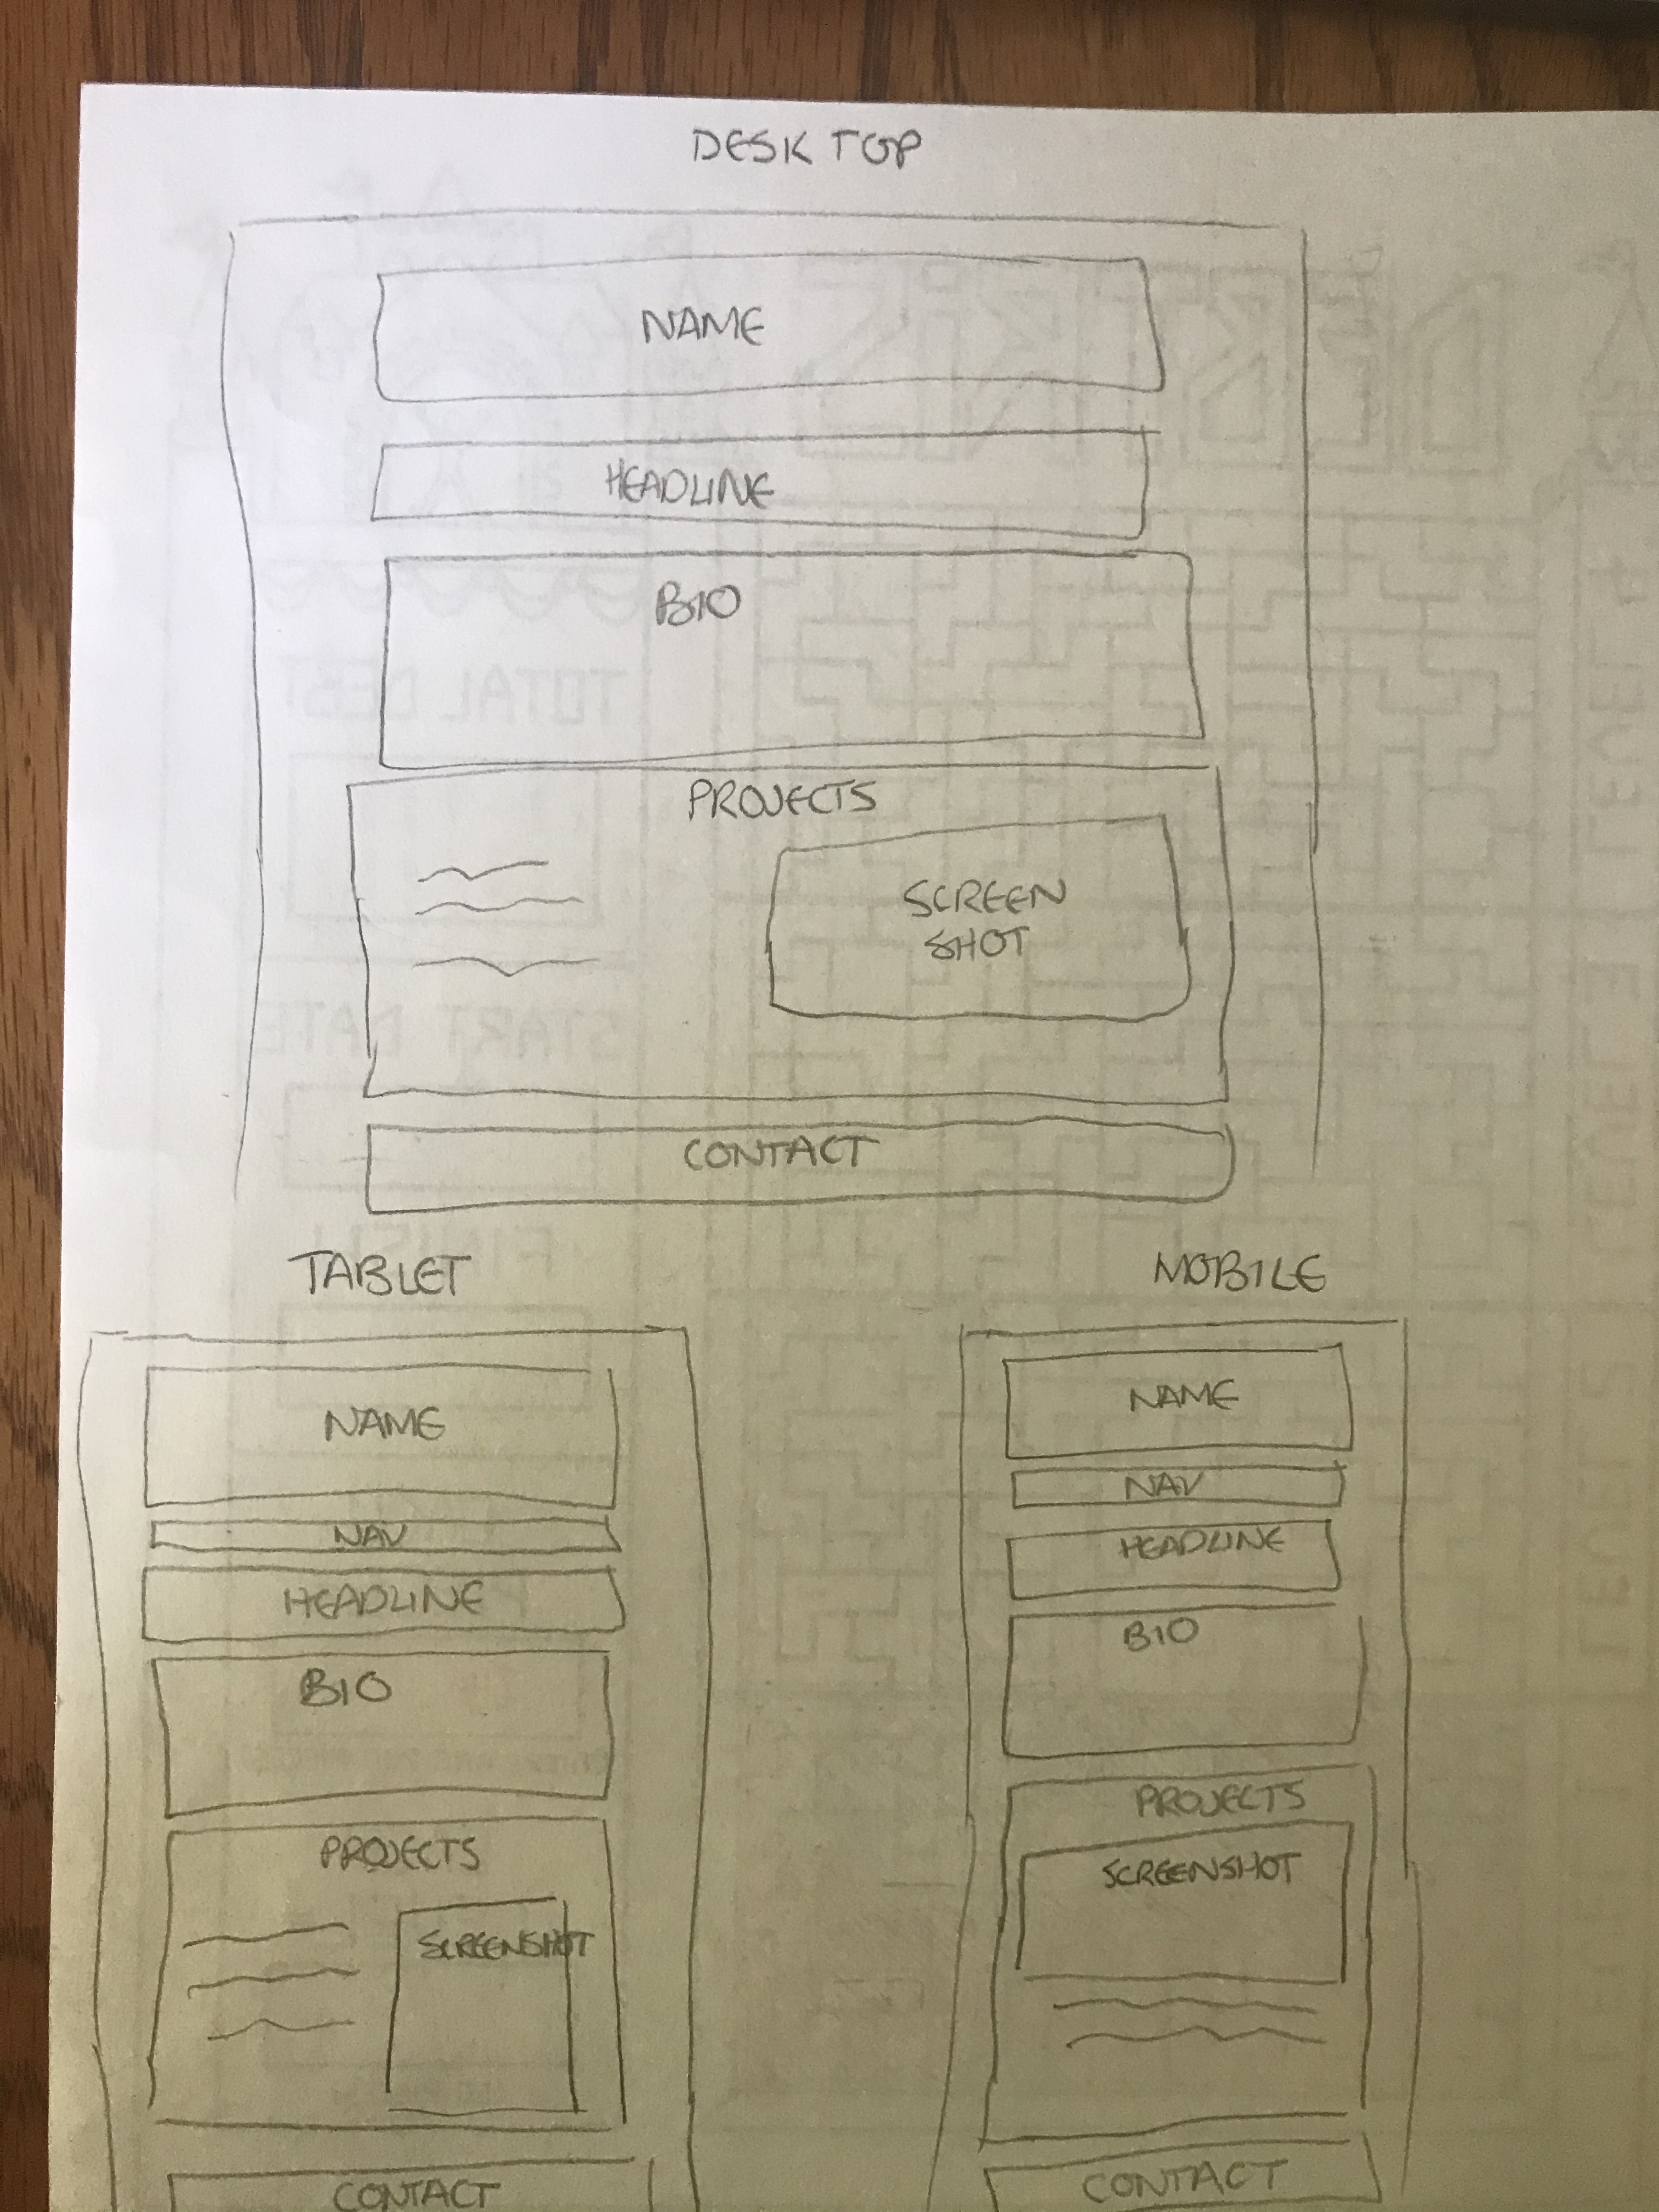 DESKTOP
NAME
HEADLINE
BIO
PROJECTS
SCREEN
SHOT
CONTACT
TABLET
NAME
NAV
HEADLINE
BIO
PROJECTS
SCREENSHOT
CONTACT
MOBILE
NAME
NAV
HEADLINE
BIO
PROJECTS
SCREENSHOT
CONTACT
TOTAL DEBT
START DATE
FINISH